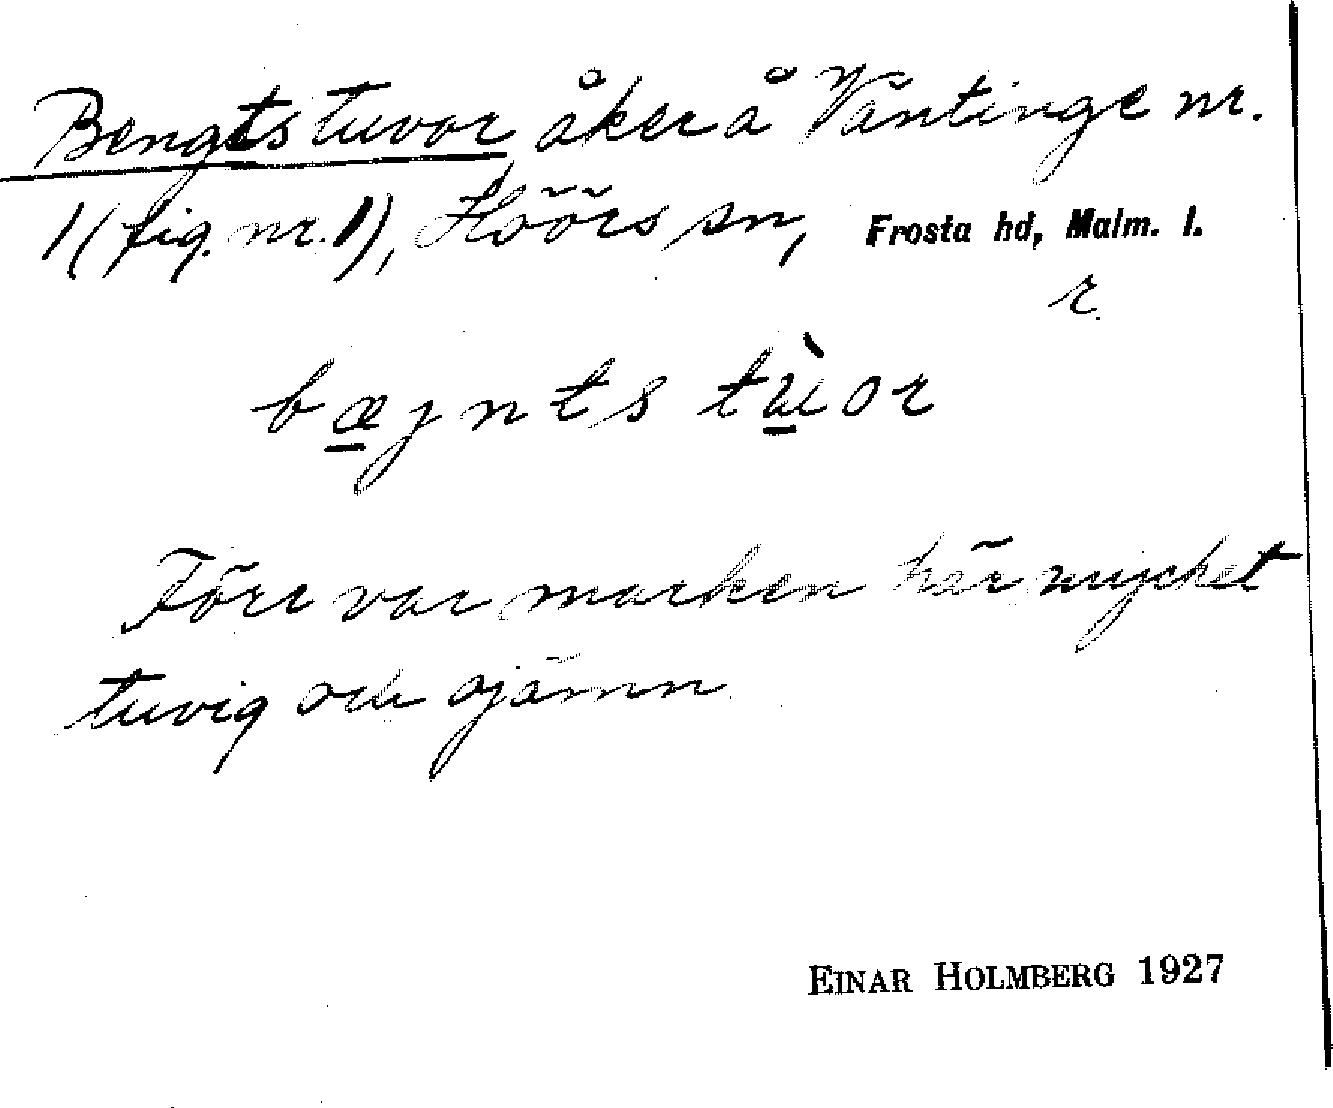 Bengts tuvor åker å Väntinge nr.
1 (fig. nr. 1), Höörs sn, Frosta hd, Malm. l.
r.
bæjnts tùor
Förr var marken här mycket
tuvig och ojämn
EINAR HOLMBERG 1927